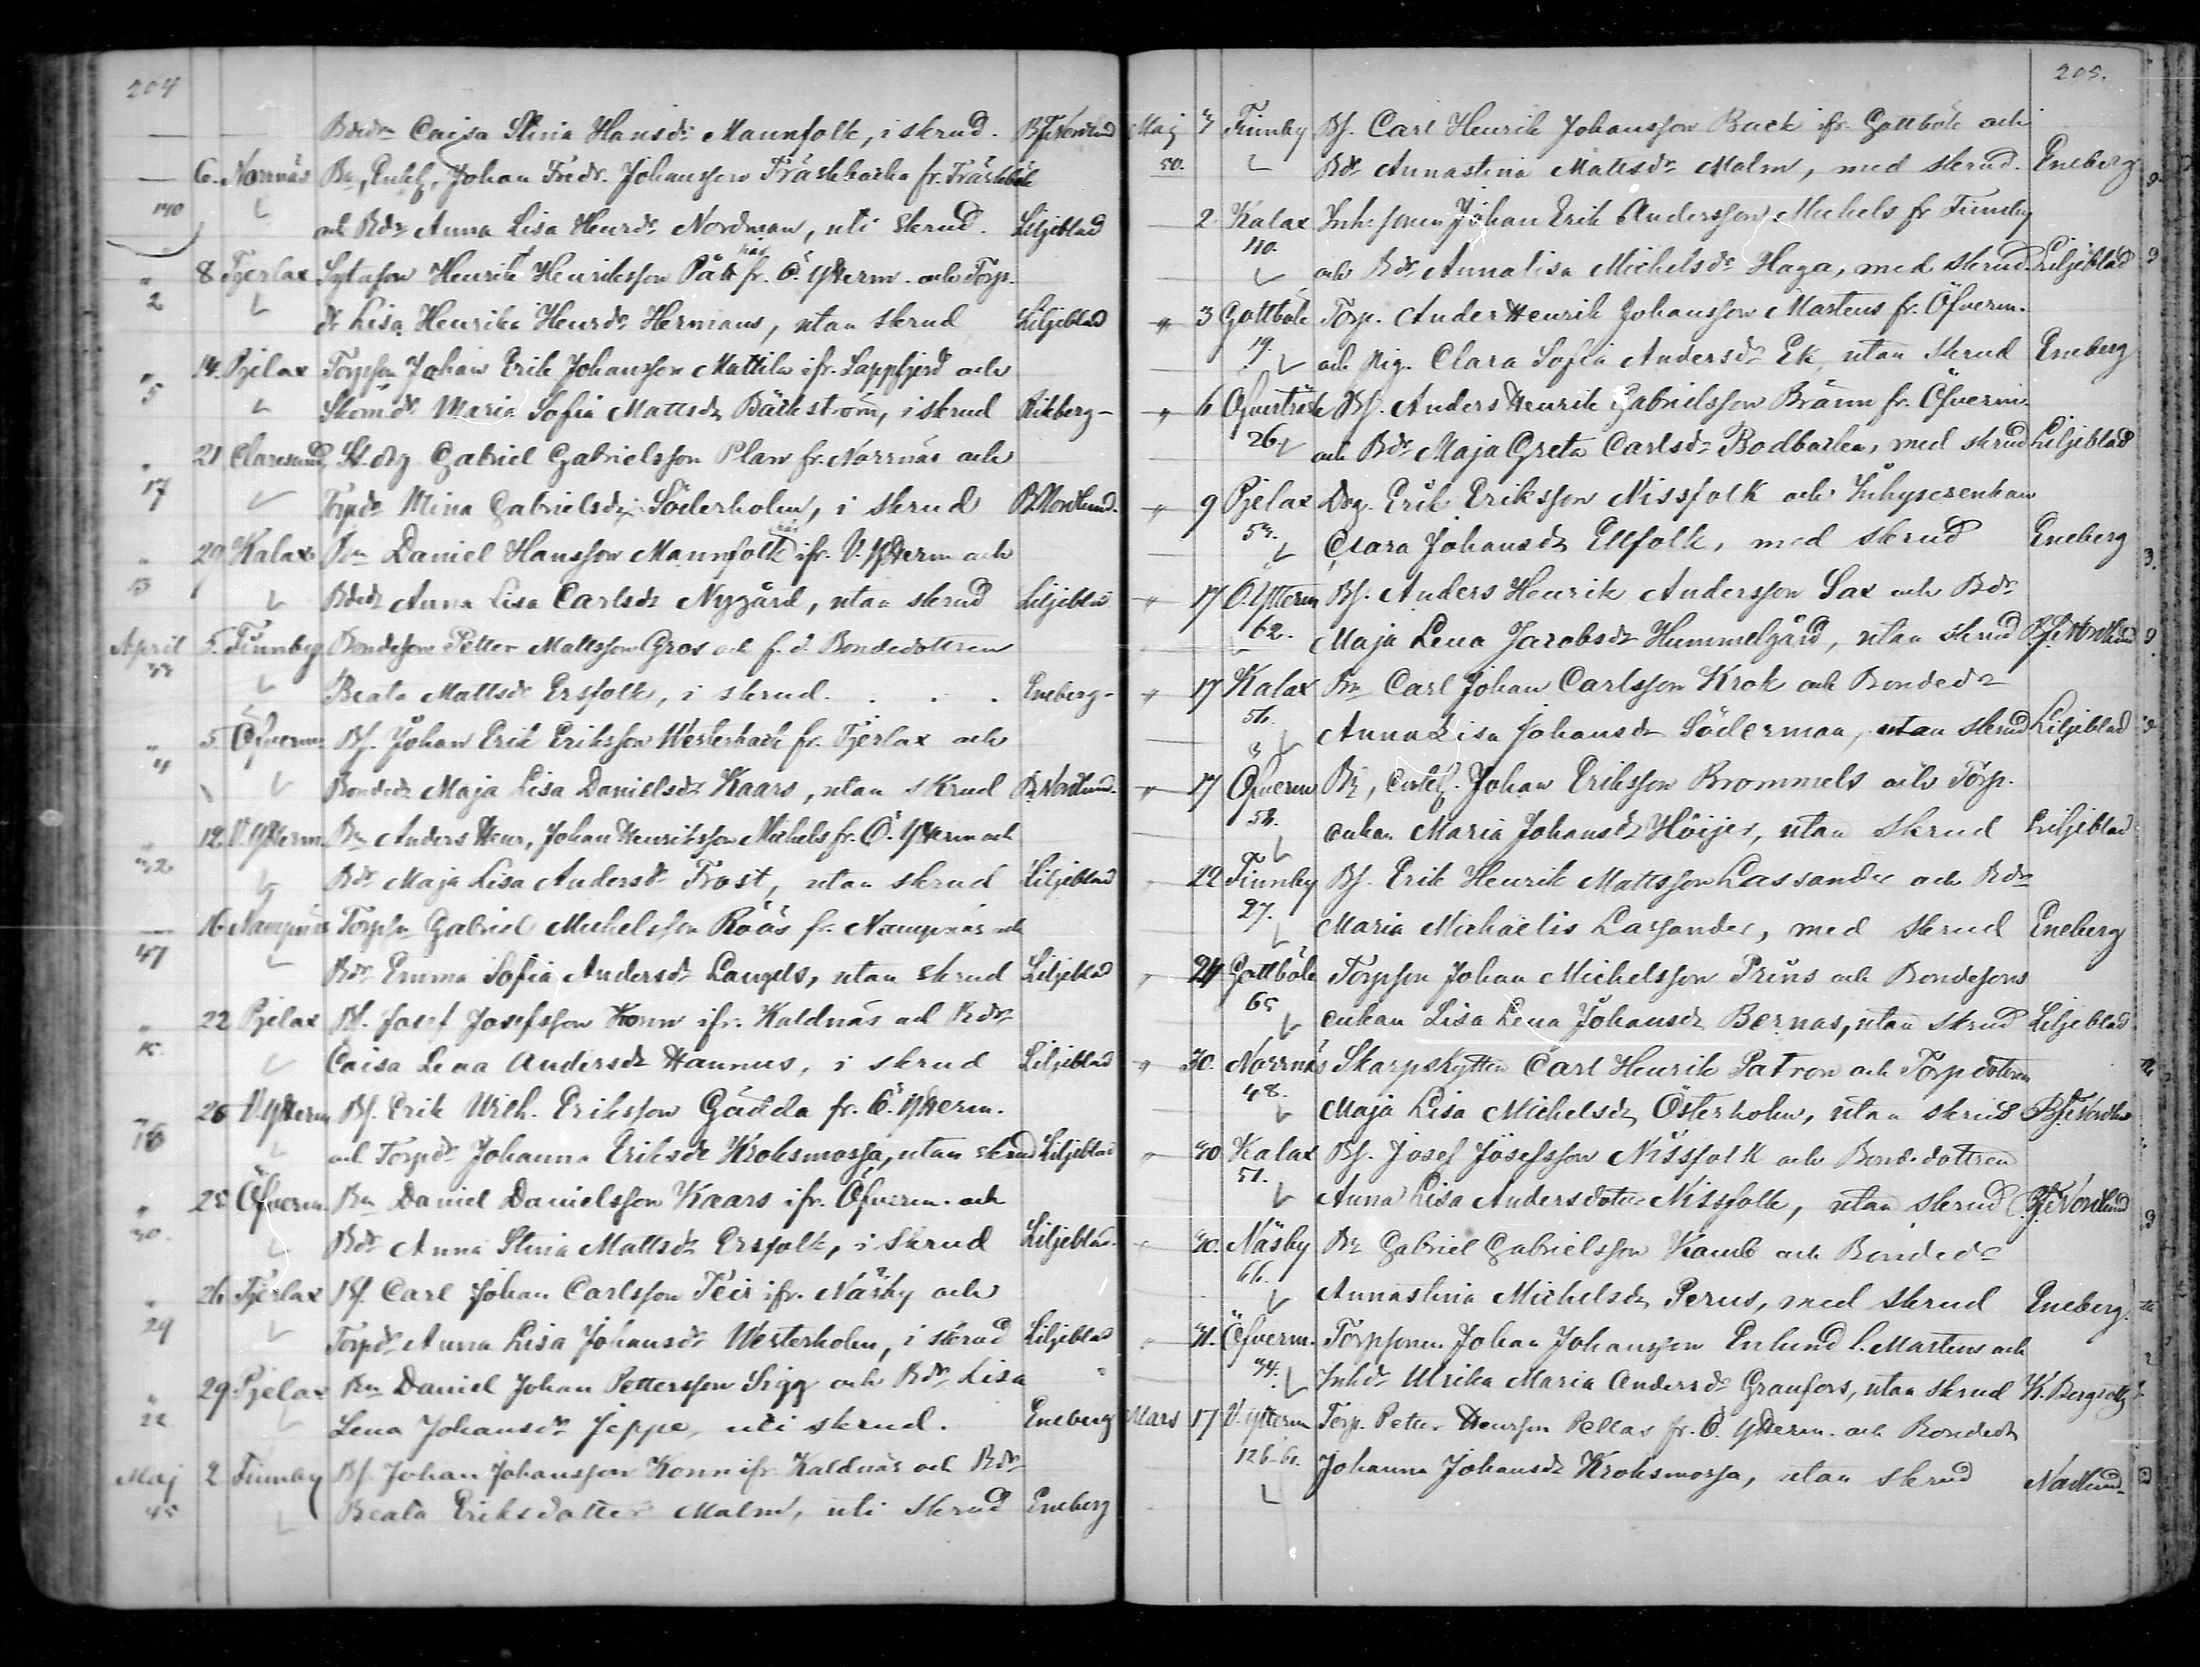 204
Bdedr Caisa Stina Hansdr Mannfolk, i skrud. B.F. Nordlund
6. Norrnäs Bn, Enkl., Johan Fredr. Johansson Träskbacka fr. Träskböle
140
och Bdr Anna Lisa Henrdr Nordman, uti skrud. Liljeblad
" 8 Tjerlax Sytnson Henrik Henriksson Pått fr. Ö. Ytterm. och Torp.
2
dr Lisa Henrika Henrdr Hermans, utan skrud Liljeblad
" 14. Pjelax Torpson Johan Erik Johansson Mattila ifr. Lappfjerd och
5
Skomdr Maria Sofia Mattsdr Bäckström, i skrud Rikberg-
" 21 Claresund, St. drg Gabriel Gabrielsson Plan fr. Norrnäs och
17
Torpdr Mina Gabrielsdr Söderholm, i skrud B. Nordlund.
" 29 Kalax Bn Daniel Hansson Mannfolk ifr. V. Ytterm och
13
Bdedr Anna Lisa Carlsdr Nygård, utan skrud Liljeblad
April 5. Finnby Bondeson Petter Mattsson Gros och f.d. Bondedottren
33
Beata Mattsdr Ersfolk, i skrud. . . . Eneberg-
" 5. Öfverm. Bs. Johan Erik Eriksson Westerback fr. Tjerlax och
4
Bondedr Maja Lisa Danielsdr Kaars, utan skrud B. Nordlund.
" 12. V. Ytterm. Bn Anders Henr, Johan Henriksson Michels fr. Ö. Ytterm och
32
Bdr Maja Lisa Andersdr Frost, utan skrud Liljeblad
16. Nampnäs Torpsn Gabriel Michelsson Röös fr. Nampnäs och
47
Bdr Emma Sofia Andersdr Langels, utan skrud Liljeblad
" 22 Pjelax Bs. Josef Josefsson Konn ifr. Kaldnäs och Bdr
15.
Caisa Lena Andersdr Hannus, i skrud Liljeblad
26 V. Ytterm Bs. Erik Wilh. Eriksson Gädda fr. Ö. Ytterm.
76
och Torpdr Johanna Eriksdr Kroksmossa, utan skrud Liljeblad
" 25 Öfverm. Bn Daniel Danielsson Kaars ifr. Öfverm. och
30.
Bdr Anna Stina Mattsdr Ersfolk, i skrud Liljeblad
" 26 Tjerlax Bs. Carl Johan Carlsson Teir ifr. Näsby och
29
Torpdr Anna Lisa Johansdr Westerholm, i skrud Liljeblad
" 29 Pjelax Bn Daniel Johan Pettersson Sigg och Bdr Lisa
22
Lena Johansdr Jeppe, uti skrud. Eneberg
Maj 2 Finnby Bs. Johan Johansson Konn ifr. Kaldnäs och Bdr
45
Beata Eriksdotter Malm, uti skrud Eneberg
205.
Maj 3 Finnby Bs. Carl Henrik Johansson Back ifr. Gottböle och
50.
Bdr Annastina Mattsdr Malm, med skrud. Eneberg
2 Kalax Inh. sonen Johan Erik Andersson Michels fr Finnby
40.
och Bdr Annalisa Michelsdr Haga, med skrud. Liljeblad
" 3 Gottböle Torp. Ander Henrik Johansson Martens fr. Öfverm.
19.
och pig. Clara Sofia Andersdr Ek, utan skrud Eneberg
" 6 Öfverträsk Bs. Anders Henrik Gabrielsson Bränn fr. Öfverm.
26
och Bdr Maja Greta Carlsdr Bodbacka, med skrud Liljeblad
" 9 Pjelax Drg. Erik Eriksson Nissfolk och Inhysesenkan
53.
Clara Johansdr Ellfolk, med skrud Eneberg
" 17 Ö. Ytterm Bs. Anders Henrik Andersson Sax och Bdr
62.
Maja Lena Jacobsdr Hummelgård, utan skrud B.F. Nordlund
" 17 Kalax Bn Carl Johan Carlsson Krok och Bondedr
56.
Anna Lisa Johansdr Söderman, utan skrud Liljeblad
" 17 Öfverm Bn, enkl. Johan Eriksson Brommels och Torp.
58.
enkan Maria Johansdr Höijer, utan skrud Liljeblad
22 Finnby Bs. Erik Henrik Mattsson Lassander och Bdr
27.
Maria Michaelis Lassander, med skrud Eneberg
24 Gottböle Torpson Johan Michelsson Prins och Bondesons
65
enkan Lisa Lena Johansdr Bernas, utan skrud Liljeblad
" 30. Norrnäs Skarpskytten Carl Henrik Patron och Torpdottren
48.
Maja Lisa Michelsdr Österholm, utan skrud B.F. Nordlund
" 30 Kalax Bs. Josef Josefsson Nissfolk och Bondedottren
51.
Anna Lisa Andersdotter Nissfolk, utan skrud B.F. Nordlund
30. Näsby Bn Gabriel Gabrielsson Kamb och Bondedr
66.
Annastina Michelsdr Perus, med skrud Eneberg.
31. Öfverm. Torpsonen Johan Johansson Enlund l. Martens och
34.
Inhdr Ulrika Maria Andersdr Granfors, utan skrud
Mars 17 V. Ytterm Torp. Petter Henrsson Pellas fr. Ö. Ytterm. och Bondedr
126
Johanna Johansdr Kroksmossa, utan skrud Nordlund.